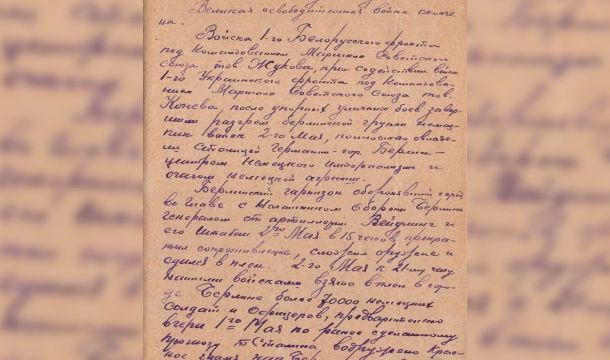 Великая освободительная война окончена.
Войска 1-го Белорусского фронта
под Командованием Маршала Советского
Союза тов. Жукова, при содействии войск
1-го Украинского фронта под Командова-
нием Маршала Советского Союза тов.
Конева после упорных уличных боев завер-
шили разгром берлинской группы немец-
ких войск 2-го Мая, полностью овладе-
ли Столицей Германии-гор. Берлин-
центром Немецкого Империализма и
очагом немецкой агрессии.
Берлинский гарнизон оборонявший город
во главе с Начальником Обороны Берлина
генералом от артиллерии Вейдлинг и
его штабом 2го Мая в 15 часов прекра-
тил сопротивление, сложил оружие и
сдался в плен. 2-го Мая к 21му часу
нашими войсками взято в плен в горо-
де Берлине более 70000 немецких
солдат и офицеров, предварительно
вчера 1го Мая по ранее сделанному
прогнозу т Сталина водружено Крас-
ное знамя над Бер